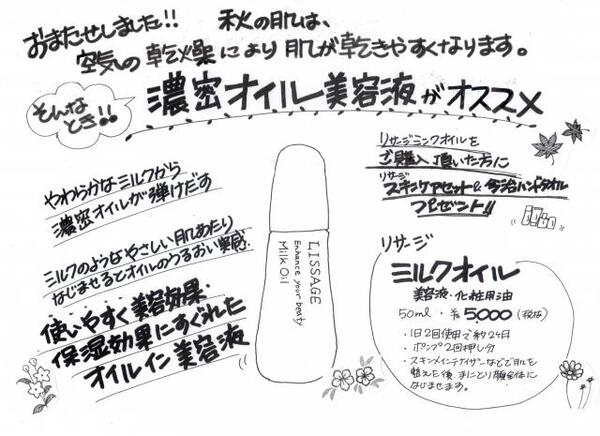 おまたせしました!! 秋の肌は、
空気の乾燥により肌が乾きやすくなります。
そんな
とき!!
濃密オイル美容液がオススメ
やわらかなミルクから
濃密オイルが弾けだす
ミルクのようなやさしい肌あたり
なじませるとオイルのうるおい実感
使いやすく美容効果・
保湿効果にすぐれた
オイルイン美容液
LISSAGE
Enhance your beauty
Milk Oil
リサージミルクオイルを
ご購入頂いた方に
リサージ
スキンケアセット&今治ハンドタオル
プレゼント!!
リサージ
ミルクオイル
美容液・化粧用油
50ml・¥5000(税抜)
・1日2回使用で約24日
・ポンプ2回押し分
・スキンメインテナイザーなどで肌を
整えた後、手にとり顔全体に
なじませます。